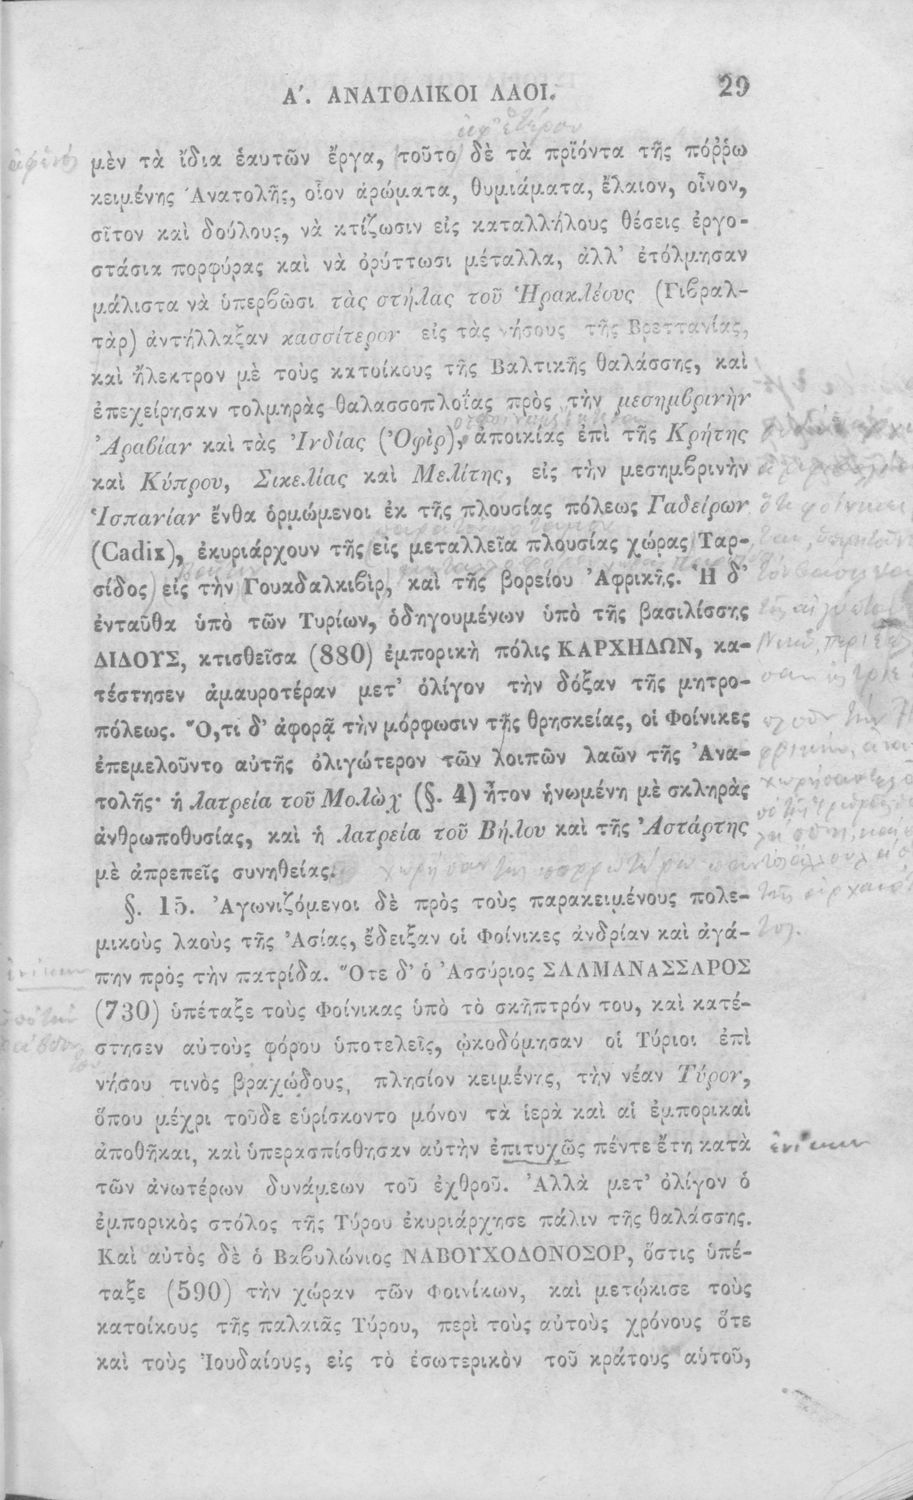 Α΄. ΑΝΑΤΟΛΙΚΟΙ ΛΑΟΙ. 29
ἀφ' ἑτέρου
μὲν τὰ ἴδια ἑαυτῶν ἔργα, τοῦτο δὲ τὰ πρϊόντα τῆς πόῤῥω
κειμένης Ἀνατολῆς, οἷον ἀρώματα, θυμιάματα, ἔλαιον, οἶνον,
σῖτον καὶ δούλους, νὰ κτίζωσιν εἰς καταλλήλους θέσεις ἐργο-
στάσια πορφύρας καὶ νὰ ὀρύττωσι μέταλλα, ἀλλ' ἐτόλμησαν
μάλιστα νὰ ὑπερβῶσι τὰς στήλας τοῦ Ἡρακλέους (Γιβραλ-
τὰρ) ἀντήλλαξαν κασσίτερον εἰς τὰς νήσους τῆς Βρεττανίας,
καὶ ἤλεκτρον μὲ τοὺς κατοίκους τῆς Βαλτικῆς θαλάσσης, καὶ
ἐπεχείρησαν τολμηρὰς θαλασσοπλοΐας πρὸς τὴν μεσημβρινὴν
Ἀραβίαν καὶ τὰς Ἰνδίας (Ὀφὶρ), ἀποικίας ἐπὶ τῆς Κρήτης
καὶ Κύπρου, Σικελίας καὶ Μελίτης, εἰς τὴν μεσημβρινὴν
Ἱσπανίαν ἔνθα ὁρμώμενοι ἐκ τῆς πλουσίας πόλεως Γαδείρων
(Cadix), ἐκυριάρχουν τῆς εἰς μεταλλεῖα πλουσίας χώρας Ταρ-
σίδος εἰς τὴν Γουαδαλκιβὶρ, καὶ τῆς βορείου Ἀφρικῆς. Ἡ δ'
ἐνταῦθα ὑπὸ τῶν Τυρίων, ὁδηγουμένων ὑπὸ τῆς βασιλίσσης
ΔΙΔΟΥΣ, κτισθεῖσα (880) ἐμπορικὴ πόλις ΚΑΡΧΗΔΩΝ, κα-
τέστησεν ἀμαυροτέραν μετ' ὀλίγον τὴν δόξαν τῆς μητρο-
πόλεως. Ὅ,τι δ' ἀφορᾷ τὴν μόρφωσιν τῆς θρησκείας, οἱ Φοίνικες
ἐπεμελοῦντο αὐτῆς ὀλιγώτερον τῶν λοιπῶν λαῶν τῆς Ἀνα-
τολῆς· ἡ λατρεία τοῦ Μολὼχ (§. 4) ἦτον ἡνωμένη μὲ σκληρὰς
ἀνθρωποθυσίας, καὶ ἡ λατρεία τοῦ Βήλου καὶ τῆς Ἀστάρτης
μὲ ἀπρεπεῖς συνηθείας.
§. 15. Ἀγωνιζόμενοι δὲ πρὸς τοὺς παρακειμένους πολε-
μικοὺς λαοὺς τῆς Ἀσίας, ἔδειξαν οἱ Φοίνικες ἀνδρίαν καὶ ἀγά-
πην πρὸς τὴν πατρίδα. Ὅτε δ' ὁ Ἀσσύριος ΣΑΛΜΑΝΑΣΣΑΡΟΣ
(730) ὑπέταξε τοὺς Φοίνικας ὑπὸ τὸ σκῆπτρόν του, καὶ κατέ-
στησεν αὐτοὺς φόρου ὑποτελεῖς, ᾠκοδόμησαν οἱ Τύριοι ἐπὶ
νήσου τινὸς βραχώδους, πλησίον κειμένης, τὴν νέαν Τύρον,
ὅπου μέχρι τοῦδε εὑρίσκοντο μόνον τὰ ἱερὰ καὶ αἱ ἐμπορικαὶ
ἀποθῆκαι, καὶ ὑπερασπίσθησαν αὐτὴν ἐπιτυχῶς πέντε ἔτη κατὰ
τῶν ἀνωτέρων δυνάμεων τοῦ ἐχθροῦ. Ἀλλὰ μετ' ὀλίγον ὁ
ἐμπορικὸς στόλος τῆς Τύρου ἐκυριάρχησε πάλιν τῆς θαλάσσης.
Καὶ αὐτὸς δὲ ὁ Βαβυλώνιος ΝΑΒΟΥΧΟΔΟΝΟΣΟΡ, ὅστις ὑπέ-
ταξε (590) τὴν χώραν τῶν Φοινίκων, καὶ μετῴκισε τοὺς
κατοίκους τῆς παλαιᾶς Τύρου, περὶ τοὺς αὐτοὺς χρόνους ὅτε
καὶ τοὺς Ἰουδαίους, εἰς τὸ ἐσωτερικὸν τοῦ κράτους αὑτοῦ,